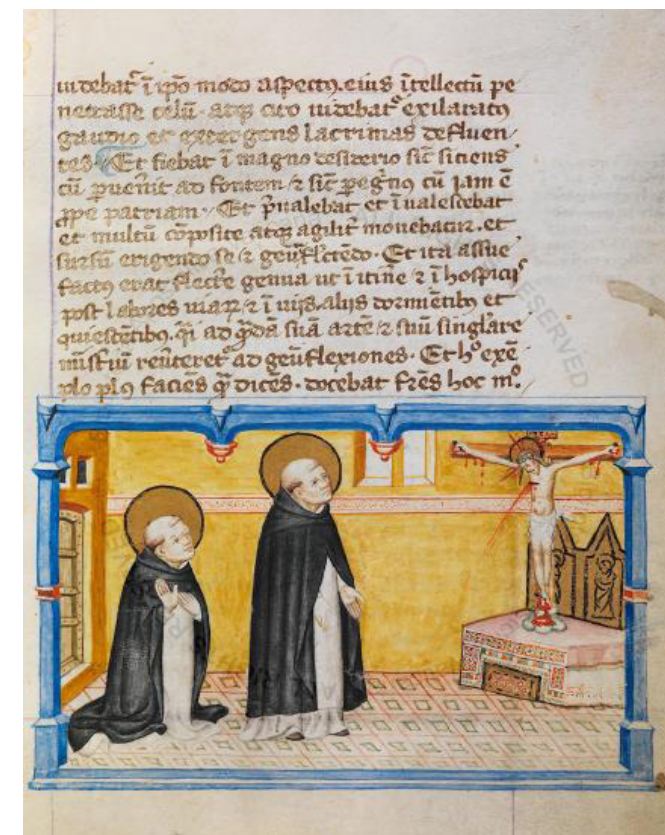 uidebat̃ ĩ ip̃o modo aspectꝯ. eius ĩtellectũ pe
netrasse celũ. atqꝫ cito uidebat᷒ exilaratꝯ
gaudio et extergens lacrimas defluen
tes. Et fiebat ĩ magno desiderio sic̃ sitiens
cũ ꝑuenit ad fontem ⁊ sic̃ ꝑegⁱnꝯ cũ iam ẽ
ꝓpe patriam. Et p̃ualebat et ĩualescebat
et multũ cõposite atqꝫ agilit̃ mouebatur. et
sursũ erigendo se ⁊ geñflc̃tẽdo. Et ita assue
factꝯ erat flectr̃e genua ut ĩ itiñe ⁊ ĩ hospicijˢ
post labores uiaꝝ ⁊ ĩ uijs. alijs dormiẽtibꝯ et
quiescẽtibꝯ. q̃i ad q̃dã suã artẽ ⁊ suũ singl̃are
miñst̃iũ reũteret᷒ ad geñflexiones. Et hº exẽ
plo plꝯ faciẽs q̃ʒ dicẽs. docebat fr̃es hoc mº.
RESERVED